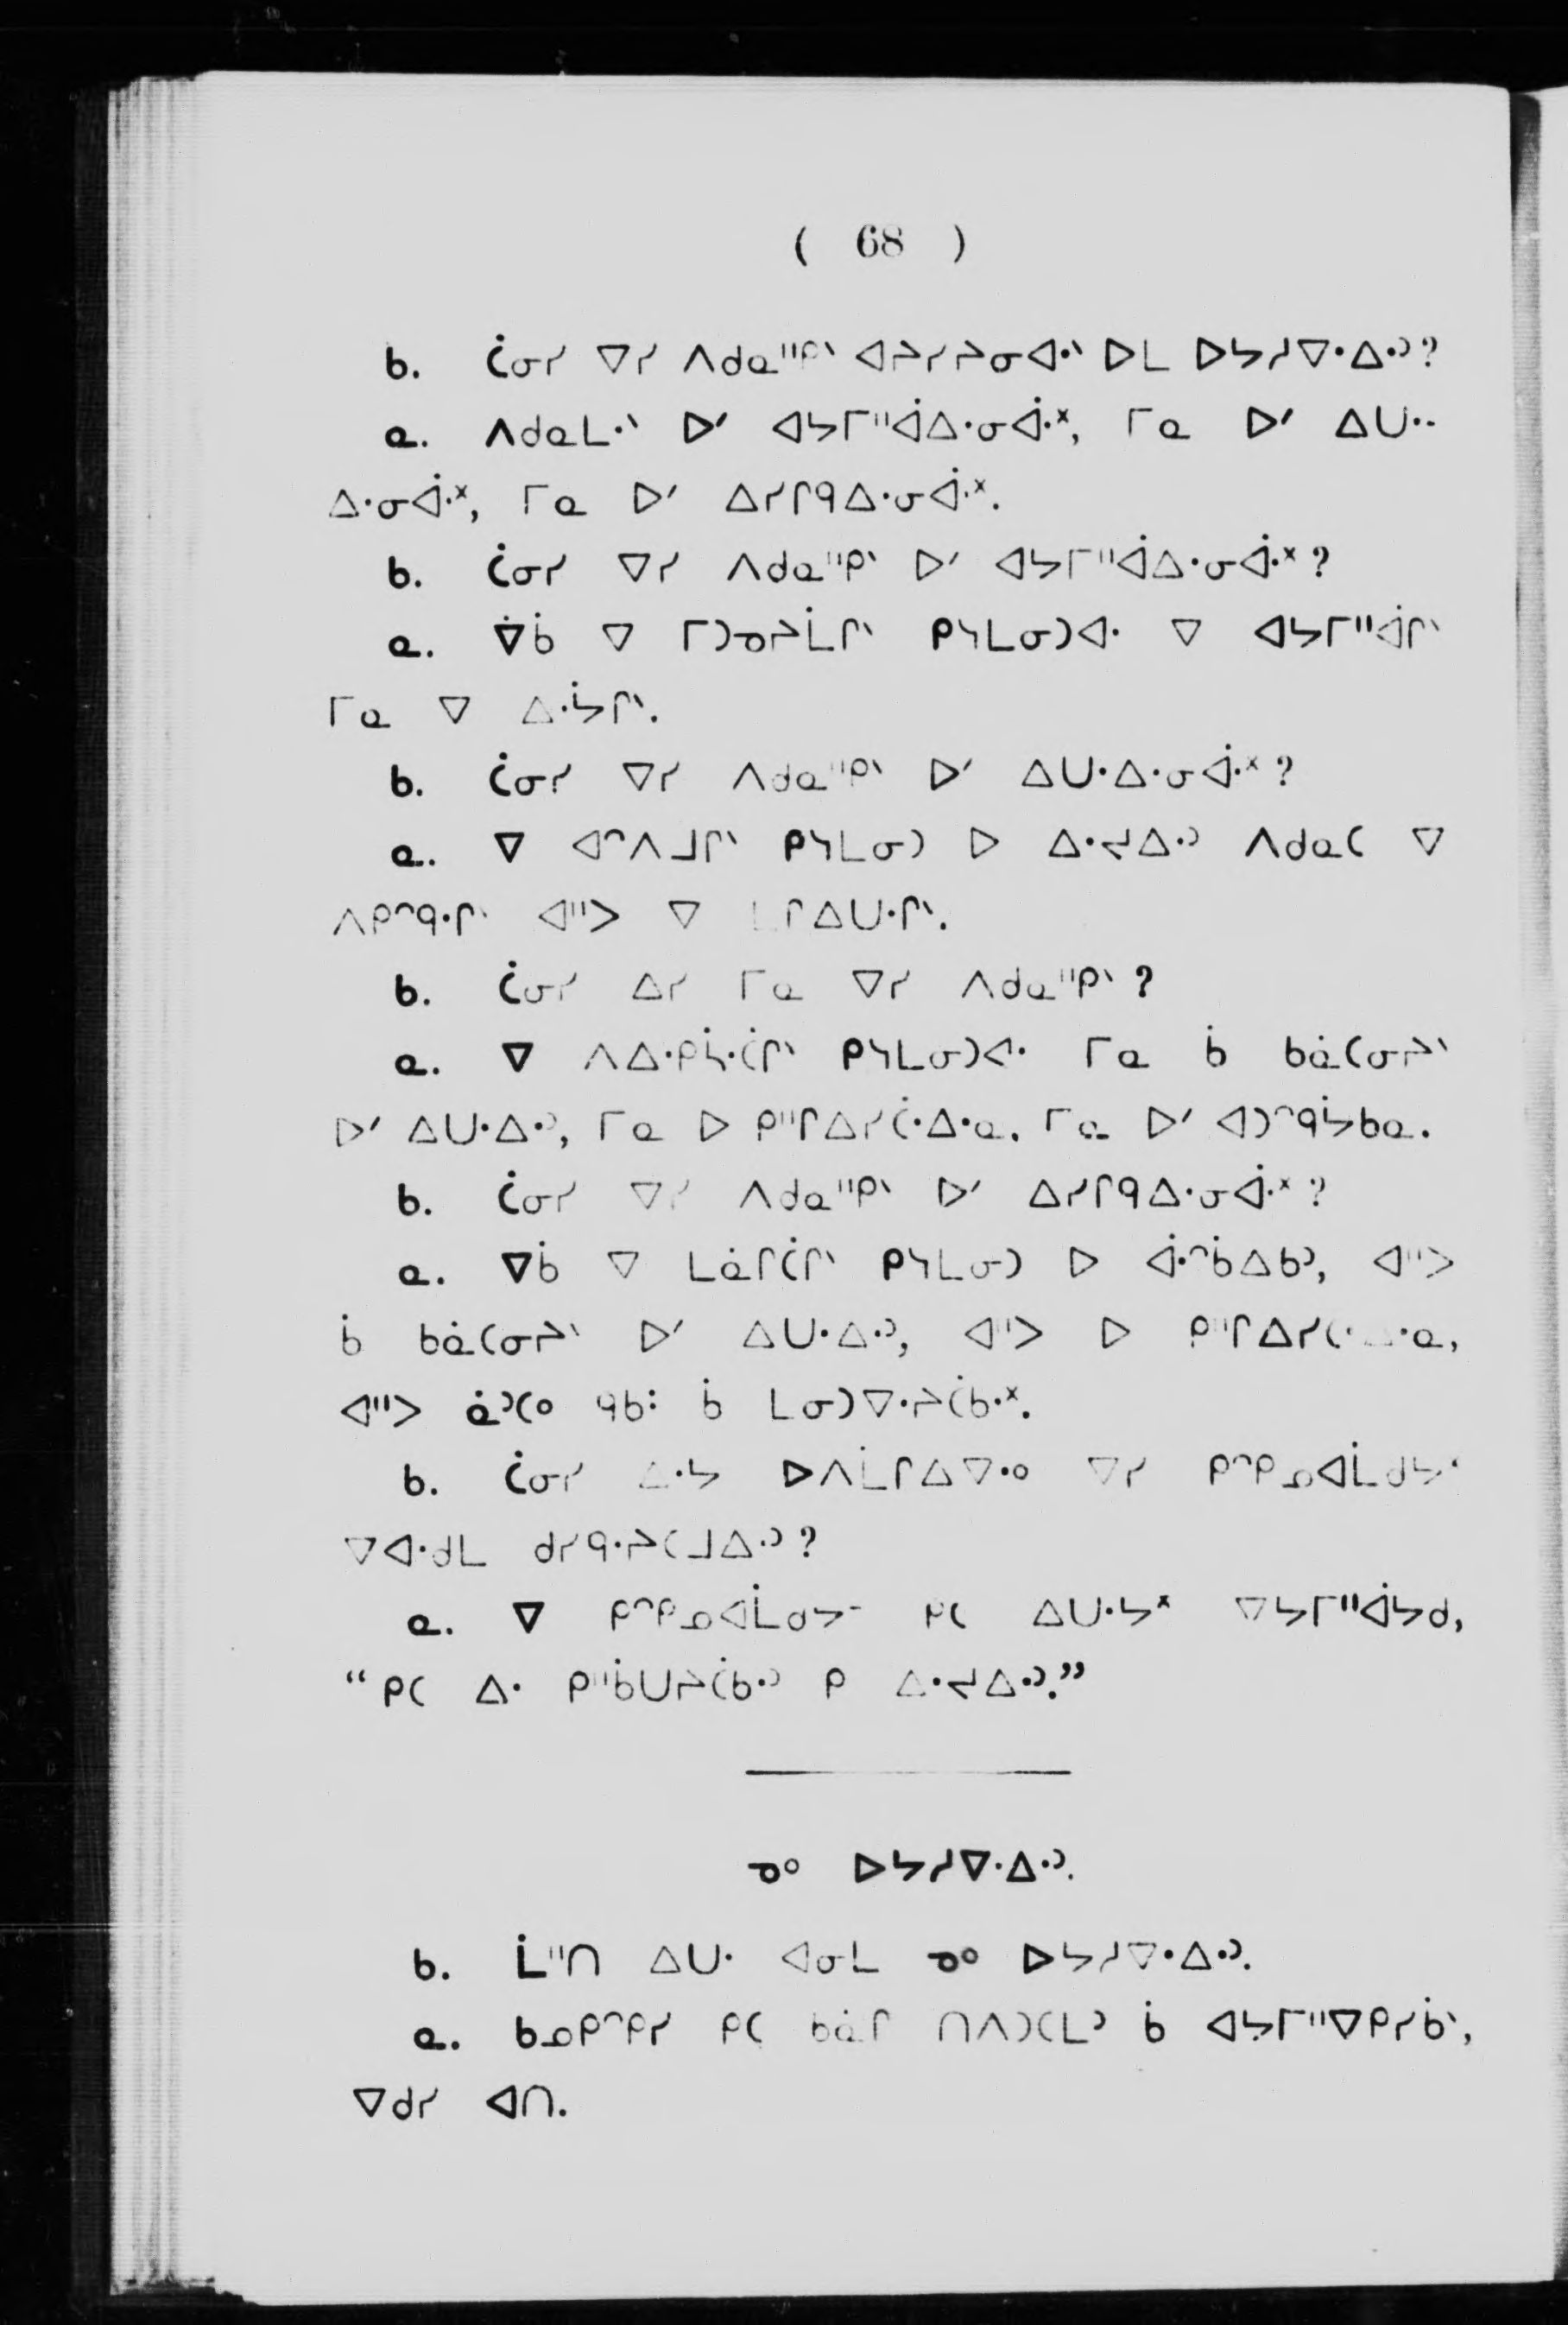 ( 68 )
ᑲ. ᑖᓂᓯ ᐁᓯ ᐱᑯᓇᐦᑭᐠ ᐊᔨᓯᔨᓂᐊᐧᐠ ᐅᒪ ᐅᔭᓱᐁᐧᐃᐧᐣ?
ᓇ. ᐱᑯᓇᒪᐧᐠ ᐅᐟ ᐊᔭᒥᐦᐋᐃᐧᓂᐋᐧᕽ, ᒥᓇ ᐅᐟ ᐃᑌᐧ-
ᐃᐧᓂᐋᐧᕽ, ᒥᓇ ᐅᐟ ᐃᓯᒋᑫᐃᐧᓂᐋᐧᕽ.
ᑲ. ᑖᓂᓯ ᐁᓯ ᐱᑯᓇᐦᑭᐠ ᐅᐟ ᐊᔭᒥᐦᐋᐃᐧᓂᐋᐧᕽ?
ᓇ. ᐁᑳ ᐁ ᒥᑐᓀᔨᒫᒋᐠ ᑭᓴᒪᓂᑐᐊᐧ ᐁ ᐊᔭᒥᐦᐋᒋᐠ
ᒥᓇ ᐁ ᐃᐧᔮᒋᐠ.
ᑲ. ᑖᓂᓯ ᐁᓯ ᐱᑯᓇᐦᑭᐠ ᐅᐟ ᐃᑌᐧᐃᐧᓂᐋᐧᕽ?
ᓇ. ᐁ ᐊᐢᐱᒧᒋᐠ ᑭᓴᒪᓂᑐ ᐅ ᐃᐧᔪᐃᐧᐣ ᐱᑯᓇᑕ ᐁ
ᐱᑭᐢᑫᐧᒋᐠ ᐊᐦᐳ ᐁ ᒪᒋᐃᑌᐧᒋᐠ.
ᑲ. ᑖᓂᓯ ᐃᓯ ᒥᓇ ᐁᓯ ᐱᑯᓇᐦᑭᐠ?
ᓇ. ᐁ ᐱᐃᐧᑭᓵᐧᑖᒋᐠ ᑭᓴᒪᓂᑐᐊᐧ ᒥᓇ ᑳ ᑲᓈᑕᓂᔨᐠ
ᐅᐟ ᐃᑌᐧᐃᐧᐣ, ᒥᓇ ᐅ ᑭᐦᒋᐃᓯᑖᐧᐃᐧᓇ, ᒥᓇ ᐅᐟ ᐊᑐᐢᑫᔮᑲᓇ.
ᑲ. ᑖᓂᓯ ᐁᓯ ᐱᑯᓇᐦᑭᐠ ᐅᐟ ᐃᓯᒋᑫᐃᐧᓂᐋᐧᕽ?
ᓇ. ᐁᑳ ᐁ ᒪᓈᒋᑖᒋᐠ ᑭᓴᒪᓂᑐ ᐅ ᐋᐧᐢᑳᐃᑲᐣ, ᐊᐦᐳ
ᑳ ᑲᓈᑕᓂᔨᐠ ᐅᐟ ᐃᑌᐧᐃᐧᐣ, ᐊᐦᐳ ᐅ ᑭᐦᒋᐃᓯᑕᐧᐃᐧᓇ,
ᐊᐦᐳ ᓈᐣᑕᐤ ᑫᑲᐧᐩ ᑳ ᒪᓂᑐᐁᐧᔨᑖᑲᐧᕽ.
ᑲ. ᑖᓂᓯ ᐃᐧᔭ ᐅᐱᒫᒋᐃᐁᐧᐤ ᐁᓯ ᑭᐢᑭᓄᐊᒫᑯᔭᐠ
ᐁᐊᐧᑯᒪ ᑯᓯᑫᐧᔨᑕᒧᐃᐧᐣ?
ᓇ. ᐁ ᑭᐢᑭᓄᐊᒫᑯᔭᐠ ᑭᑕ ᐃᑌᐧᔭᕽ ᐁᔭᒥᐦᐋᔭᑯ,
“ ᑭᑕ ᐃᐧ ᑭᐦᑳᑌᔨᑖᑲᐧᐣ ᑭ ᐃᐧᔪᐃᐧᐣ.”
ᓀᐤ ᐅᔭᓱᐁᐧᐃᐧᐣ.
ᑲ. ᒫᐦᑎ ᐃᑌᐧ ᐊᓂᒪ ᓀᐤ ᐅᔭᓱᐁᐧᐃᐧᐣ.
ᓇ. ᑲᓄᑭᐢᑭᓯ ᑭᑕ ᑲᓈᒋ ᑎᐱᑐᑕᒪᐣ ᑳ ᐊᔭᒥᐦᐁᑭᓯᑳᐠ,
ᐁᑯᓯ ᐊᑎ.